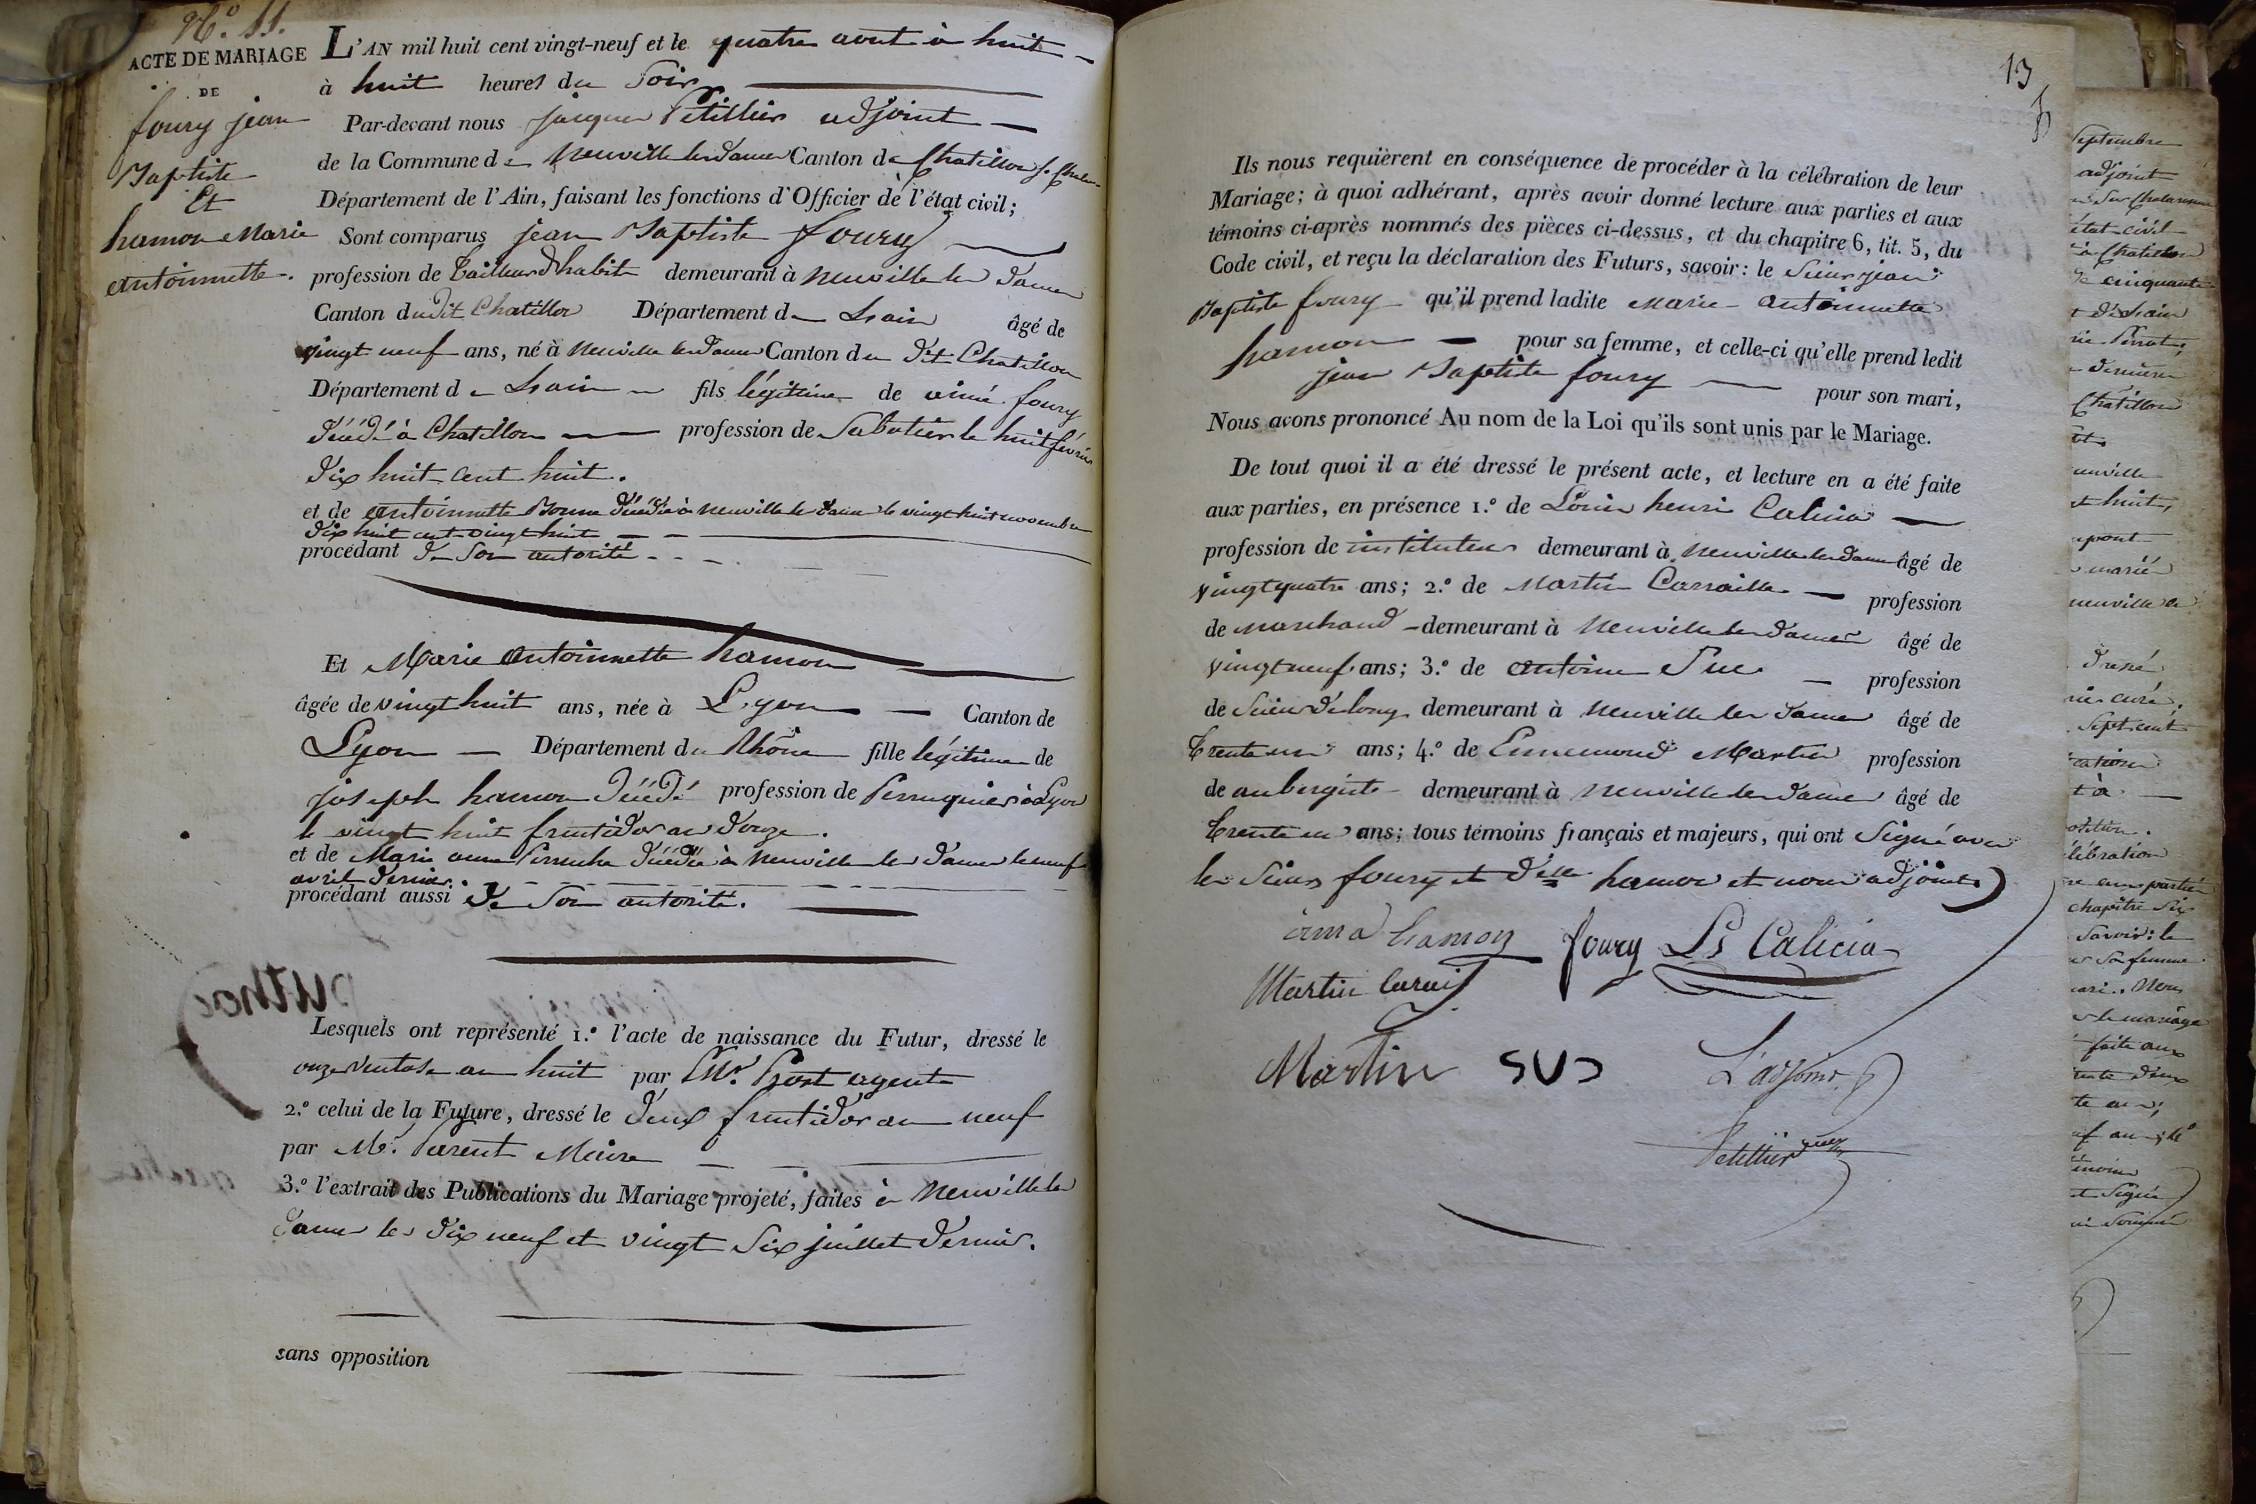 N.° 11.
ACTE DE MARIAGE
DE
foury jean
Baptiste
Et
hamon Marie
antoinnette.
L'AN mil huit cent vingt-neuf et le quatre aout à huit
à huit heures du Soir
Par-devant nous jacques Petillier adjoint
de la Commune de Neuville les dames Canton de Chatillon s. Chalar.
Département de l'Ain, faisant les fonctions d'Officier de l'état civil;
Sont comparus jean Baptiste foury
profession de Tailleur d'habit demeurant à Neuville les Dames
Canton dudit Chatillon Département de Lain âgé de
vingt neuf ans, né à Neuville les Dames Canton du dit Chatillon
Département de Lain fils légitime de aimé foury
décédé à Chatillon profession de Sabotier le huit févrie
dix huit cent huit.
et de antoinnette Bonne décédée à Neuville les dames le vingt huit novembre
dix huit cent vingt huit
procédant de Son autorité
Et Marie antoinnette hamon
âgée de vingt huit ans, née à Lyon Canton de
Lyon Département du Rhône fille légitime de
joseph hamon décédé profession de Perruquier à Lyon
le vingt huit fructidor an douze.
et de Marie anne décédée à Neuville les dames le neuf
avril dernier.
procédant aussi de Son autorité.
Lesquels ont représenté 1.° l'acte de naissance du Futur, dressé le
onze ventose an huit par Mr. Prost agent
2.° celui de la Future, dressé le deux fructidor an neuf
par Mr. Parent Maire
3.° l'extrait des Publications du Mariage projeté, faites à Neuville les
dames les dix neuf et vingt Six juillet dernier.
sans opposition
13
Ils nous requièrent en conséquence de procéder à la célébration de leur
Mariage; à quoi adhérant, après avoir donné lecture aux parties et aux
témoins ci-après nommés des pièces ci-dessus, et du chapitre 6, tit. 5, du
Code civil, et reçu la déclaration des Futurs, savoir: le Sieur jean
Baptiste foury qu'il prend ladite Marie antoinnette
hamon pour sa femme, et celle-ci qu'elle prend ledit
jean Baptiste foury pour son mari,
Nous avons prononcé Au nom de la Loi qu'ils sont unis par le Mariage.
De tout quoi il a été dressé le présent acte, et lecture en a été faite
aux parties, en présence 1.° de Louis henri Calicia
profession de instituteur demeurant à Neuville les dames âgé de
vingt quatre ans; 2.° de Martin Carraille profession
de marchand demeurant à Neuville les dames âgé de
vingt neuf ans; 3.° de antoine Suc profession
de Scieur de long demeurant à Neuville les dames âgé de
trente un ans; 4.° de Ennemond Martin profession
de aubergiste demeurant à Neuville les dames âgé de
trente un ans; tous témoins français et majeurs, qui ont Signé avec
les Sieurs foury et delle hamon et nous adjoint
hamon foury Ls Calicia
Martin
Martin SUC L'adjoint
Petillier
Septembre
adjoint
état civil
à Chatillon
cinquante
Chatillon
neuville
t huit,
marié
neuville
dressé
curé.
Sept cent
t à
lébration
chapitre Six
Savoir: le
Sa femme
Nous
le mariage
faite aux
et Signé